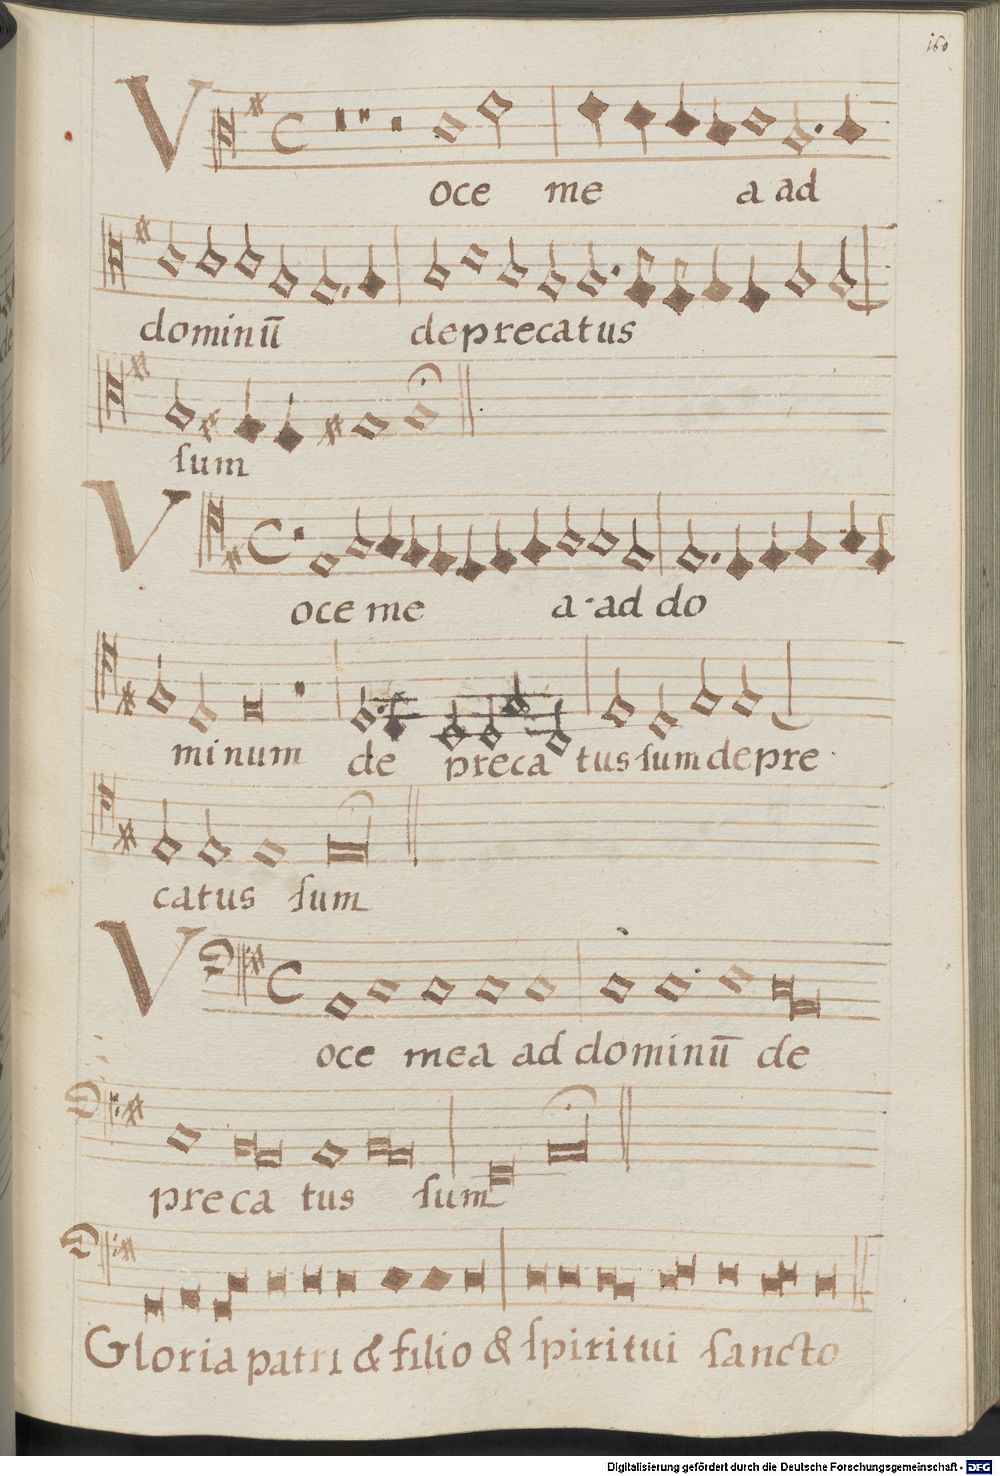 160
Voce me a ad
dominū deprecatus
ſum
Voce me a ad do
minum de preca tus ſum depre
catus ſum
Voce mea ad dominū de
preca tus ſum
Gloria patri & filio & ſpiritui ſancto
Digitalisierung gefördert durch die Deutsche Forschungsgemeinschaft - DFG